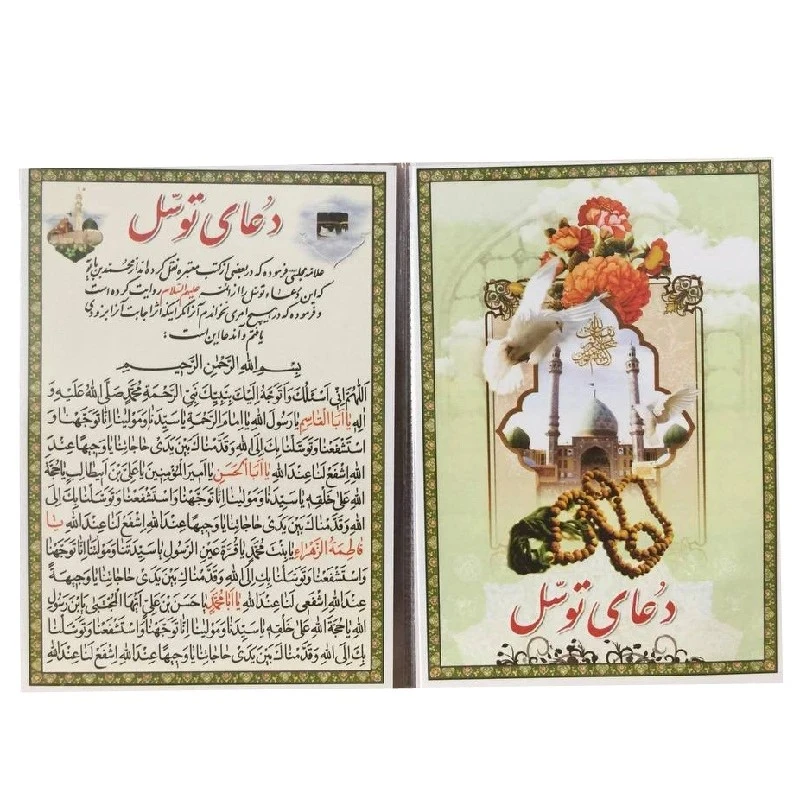 دعای توسل
علامه مجلسی فرموده که در بعضی از کتب معتبره نقل کرده‌اند از محمد بن بابویه
که این دعاء توسل را از ائمه علیهم‌السلام روایت کرده است
و فرموده که در هیچ امری نخواندم آنرا مگر اینکه اثر اجابت آنرا بزودی
یافتم و آن دعا این است:
بِسْمِ اللهِ الرَّحْمٰنِ الرَّحِيمِ
اَللّٰهُمَّ اِنّي اَسْئَلُكَ وَاَتَوَجَّهُ اِلَيْكَ بِنَبِيِّكَ نَبِيِّ الرَّحْمَةِ مُحَمَّدٍ صَلَّى اللهُ عَلَيْهِ وَ
اٰلِهِ يا اَبَا الْقاسِمِ يا رَسُولَ اللهِ يا اِمامَ الرَّحْمَةِ يا سَيِّدَنا وَمَوْلينا اِنّا تَوَجَّهْنا وَ
اسْتَشْفَعْنا وَتَوَسَّلْنا بِكَ اِلَى اللهِ وَقَدَّمْناكَ بَيْنَ يَدَيْ حاجاتِنا يا وَجِيهاً عِنْدَ
اللهِ اِشْفَعْ لَنا عِنْدَ اللهِ يا اَبَا الْحَسَنِ يا اَميرَ الْمُؤْمِنينَ يا عَلِيَّ بْنَ اَبيطالِبٍ يا حُجَّةَ
اللهِ عَلىٰ خَلْقِهِ يا سَيِّدَنا وَمَوْلينا اِنّا تَوَجَّهْنا وَاسْتَشْفَعْنا وَتَوَسَّلْنا بِكَ اِلَى
اللهِ وَقَدَّمْناكَ بَيْنَ يَدَيْ حاجاتِنا يا وَجيهاً عِنْدَ اللهِ اِشْفَعْ لَنا عِنْدَ اللهِ يا
فاطِمَةَ الزَّهْراءِ يا بِنْتَ مُحَمَّدٍ يا قُرَّةَ عَيْنِ الرَّسُولِ يا سَيِّدَتَنا وَمَوْلاتَنا اِنّا تَوَجَّهْنا
وَاسْتَشْفَعْنا وَتَوَسَّلْنا بِكِ اِلَى اللهِ وَقَدَّمْناكِ بَيْنَ يَدَيْ حاجاتِنا يا وَجيهَةً
عِنْدَ اللهِ اِشْفَعي لَنا عِنْدَ اللهِ يا اَبا مُحَمَّدٍ يا حَسَنَ بْنَ عَلِيٍّ اَيُّهَا الْمُجْتَبىٰ يَا بْنَ رَسُولِ
اللهِ يا حُجَّةَ اللهِ عَلىٰ خَلْقِهِ يا سَيِّدَنا وَمَوْلينا اِنّا تَوَجَّهْنا وَاسْتَشْفَعْنا وَتَوَسَّلْنا
بِكَ اِلَى اللهِ وَقَدَّمْناكَ بَيْنَ يَدَيْ حاجاتِنا يا وَجيهاً عِنْدَ اللهِ اِشْفَعْ لَنا عِنْدَ اللهِ
دعای توسل